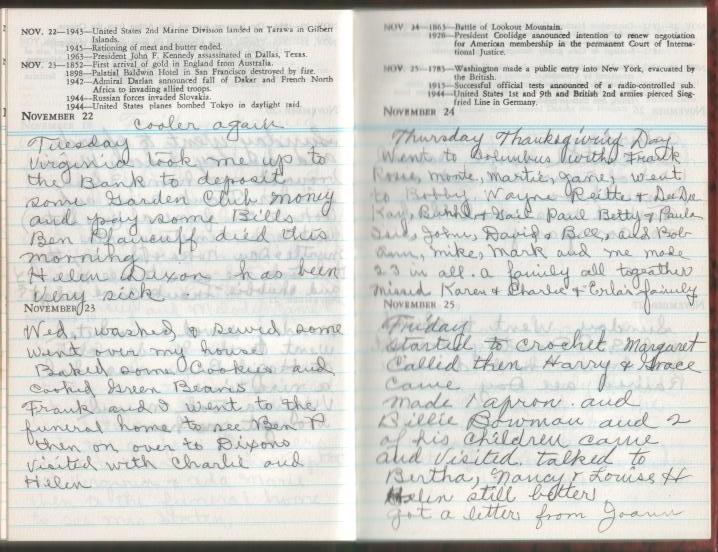 NOV. 22—1943—United States 2nd Marine Division landed on Tarawa in Gilbert
Islands.
1945—Rationing of meat and butter ended.
1963—President John F. Kennedy assassinated in Dallas, Texas.
NOV. 23—1852—First arrival of gold in England from Australia.
1898—Palatial Baldwin Hotel in San Francisco destroyed by fire.
1942—Admiral Darlan announced fall of Dakar and French North
Africa to invading allied troops.
1944—Russian forces invaded Slovakia.
1944—United States planes bombed Tokyo in daylight raid.
NOVEMBER 22
cooler again
Tuesday
Virginia took me up to
the Bank to deposit
some Garden Club money
and pay some Bills
Ben died this
morning
Helen Dixon has been
very sick
NOVEMBER 23
Wed. washed, & sewed some
went over my house
Baked some Cookies and
cooked Green Beans
Frank and I went to the
funeral home to see Ben P
then on over to Dixons
visited with Charlie and
Helen
NOV 24—1863—Battle of Lookout Mountain.
1926—President Coolidge announced intention to renew negotiation
for American membership in the permanent Court of Interna-
tional Justice.
NOV. 25—1783—Washington made a public entry into New York, evacuated by
the British.
1915—Successful official tests announced of a radio-controlled sub.
1944—United States 1st and 9th and British 2nd armies pierced Sieg-
fried Line in Germany.
NOVEMBER 24
Thursday Thanksgiving Day
Went to Columbus with Frank
Rosie, Monte, Martie, Jane, went
to Bobby, Wayne & Dee Dee
Kay, & Gail Paul Betty & Paula
John, David & Bill, and Bob
Ann, Mike, Mark and me made
23 in all. a family all together
missed Karen & Charlie & family
NOVEMBER 25
Friday
started to crochet Margaret
Called then Harry & Grace
came
made 1 apron. and
Billie Bowman and 2
of his children came
and visited. talked to
Bertha, Nancy & Louise H
Helen still better
got a letter from Joann